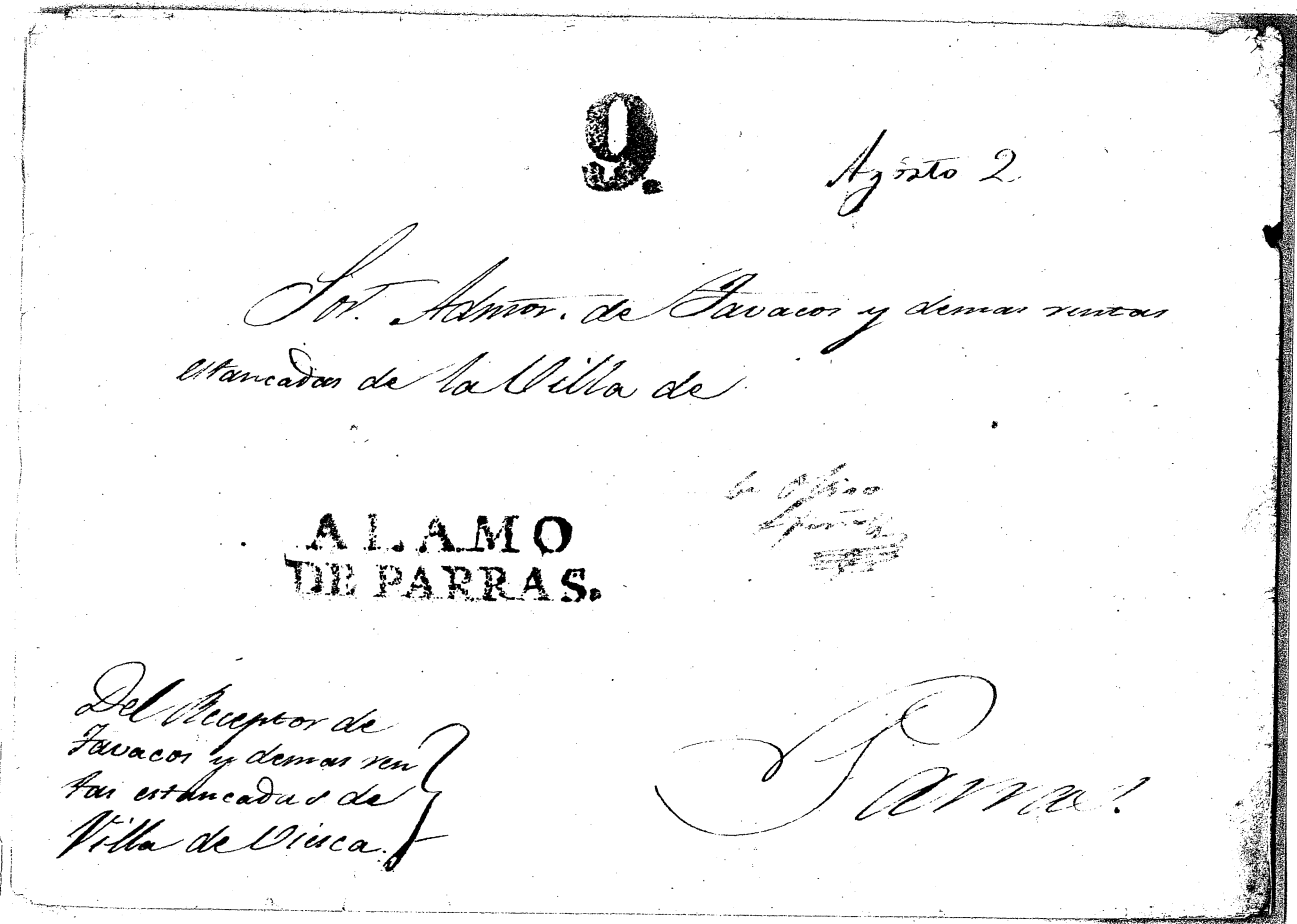 9.
Agosto 2
Sor. Admor. de Tavacos y demas rentas
estancadas de la Villa de
ALAMO
DE PARRAS.
Del Receptor de
Tavacos y demas ren
tas estancadas de
Villa de Viesca.
Parras.